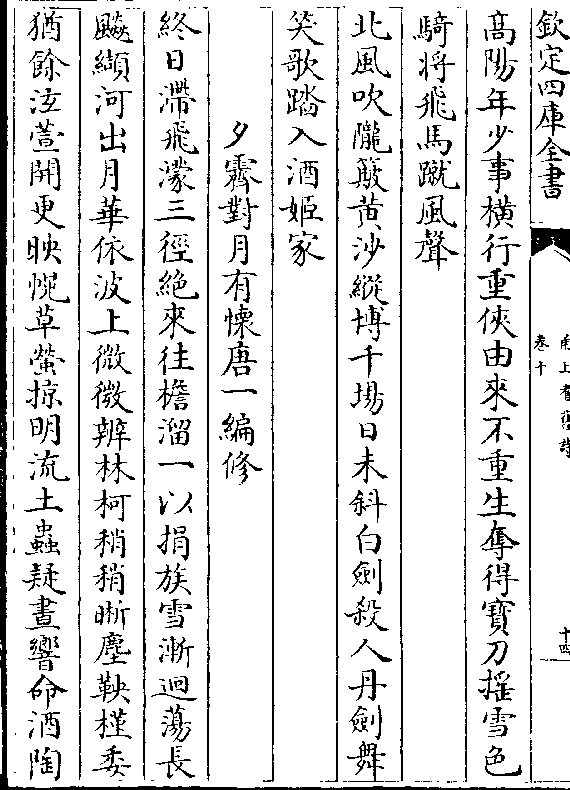 欽定四庫全書
卷十
十四
髙陽年少事横行重俠由來不重生奪得寳刀揺雪色
騎将飛馬蹴風聲
北風吹隴簸黄沙縱博千塲日未斜白劍殺人丹劍舞
笑歌踏入酒姬家
夕霽對月有懐唐一編修
終日滯飛濛三徑絶來往檐溜一以捐族雪漸迴蕩長
飈纈河出月華依波上微微辨林柯稍稍晰塵鞅槿委
猶餘泫萱開更映幌草螢掠明流土蟲疑晝響命酒陶